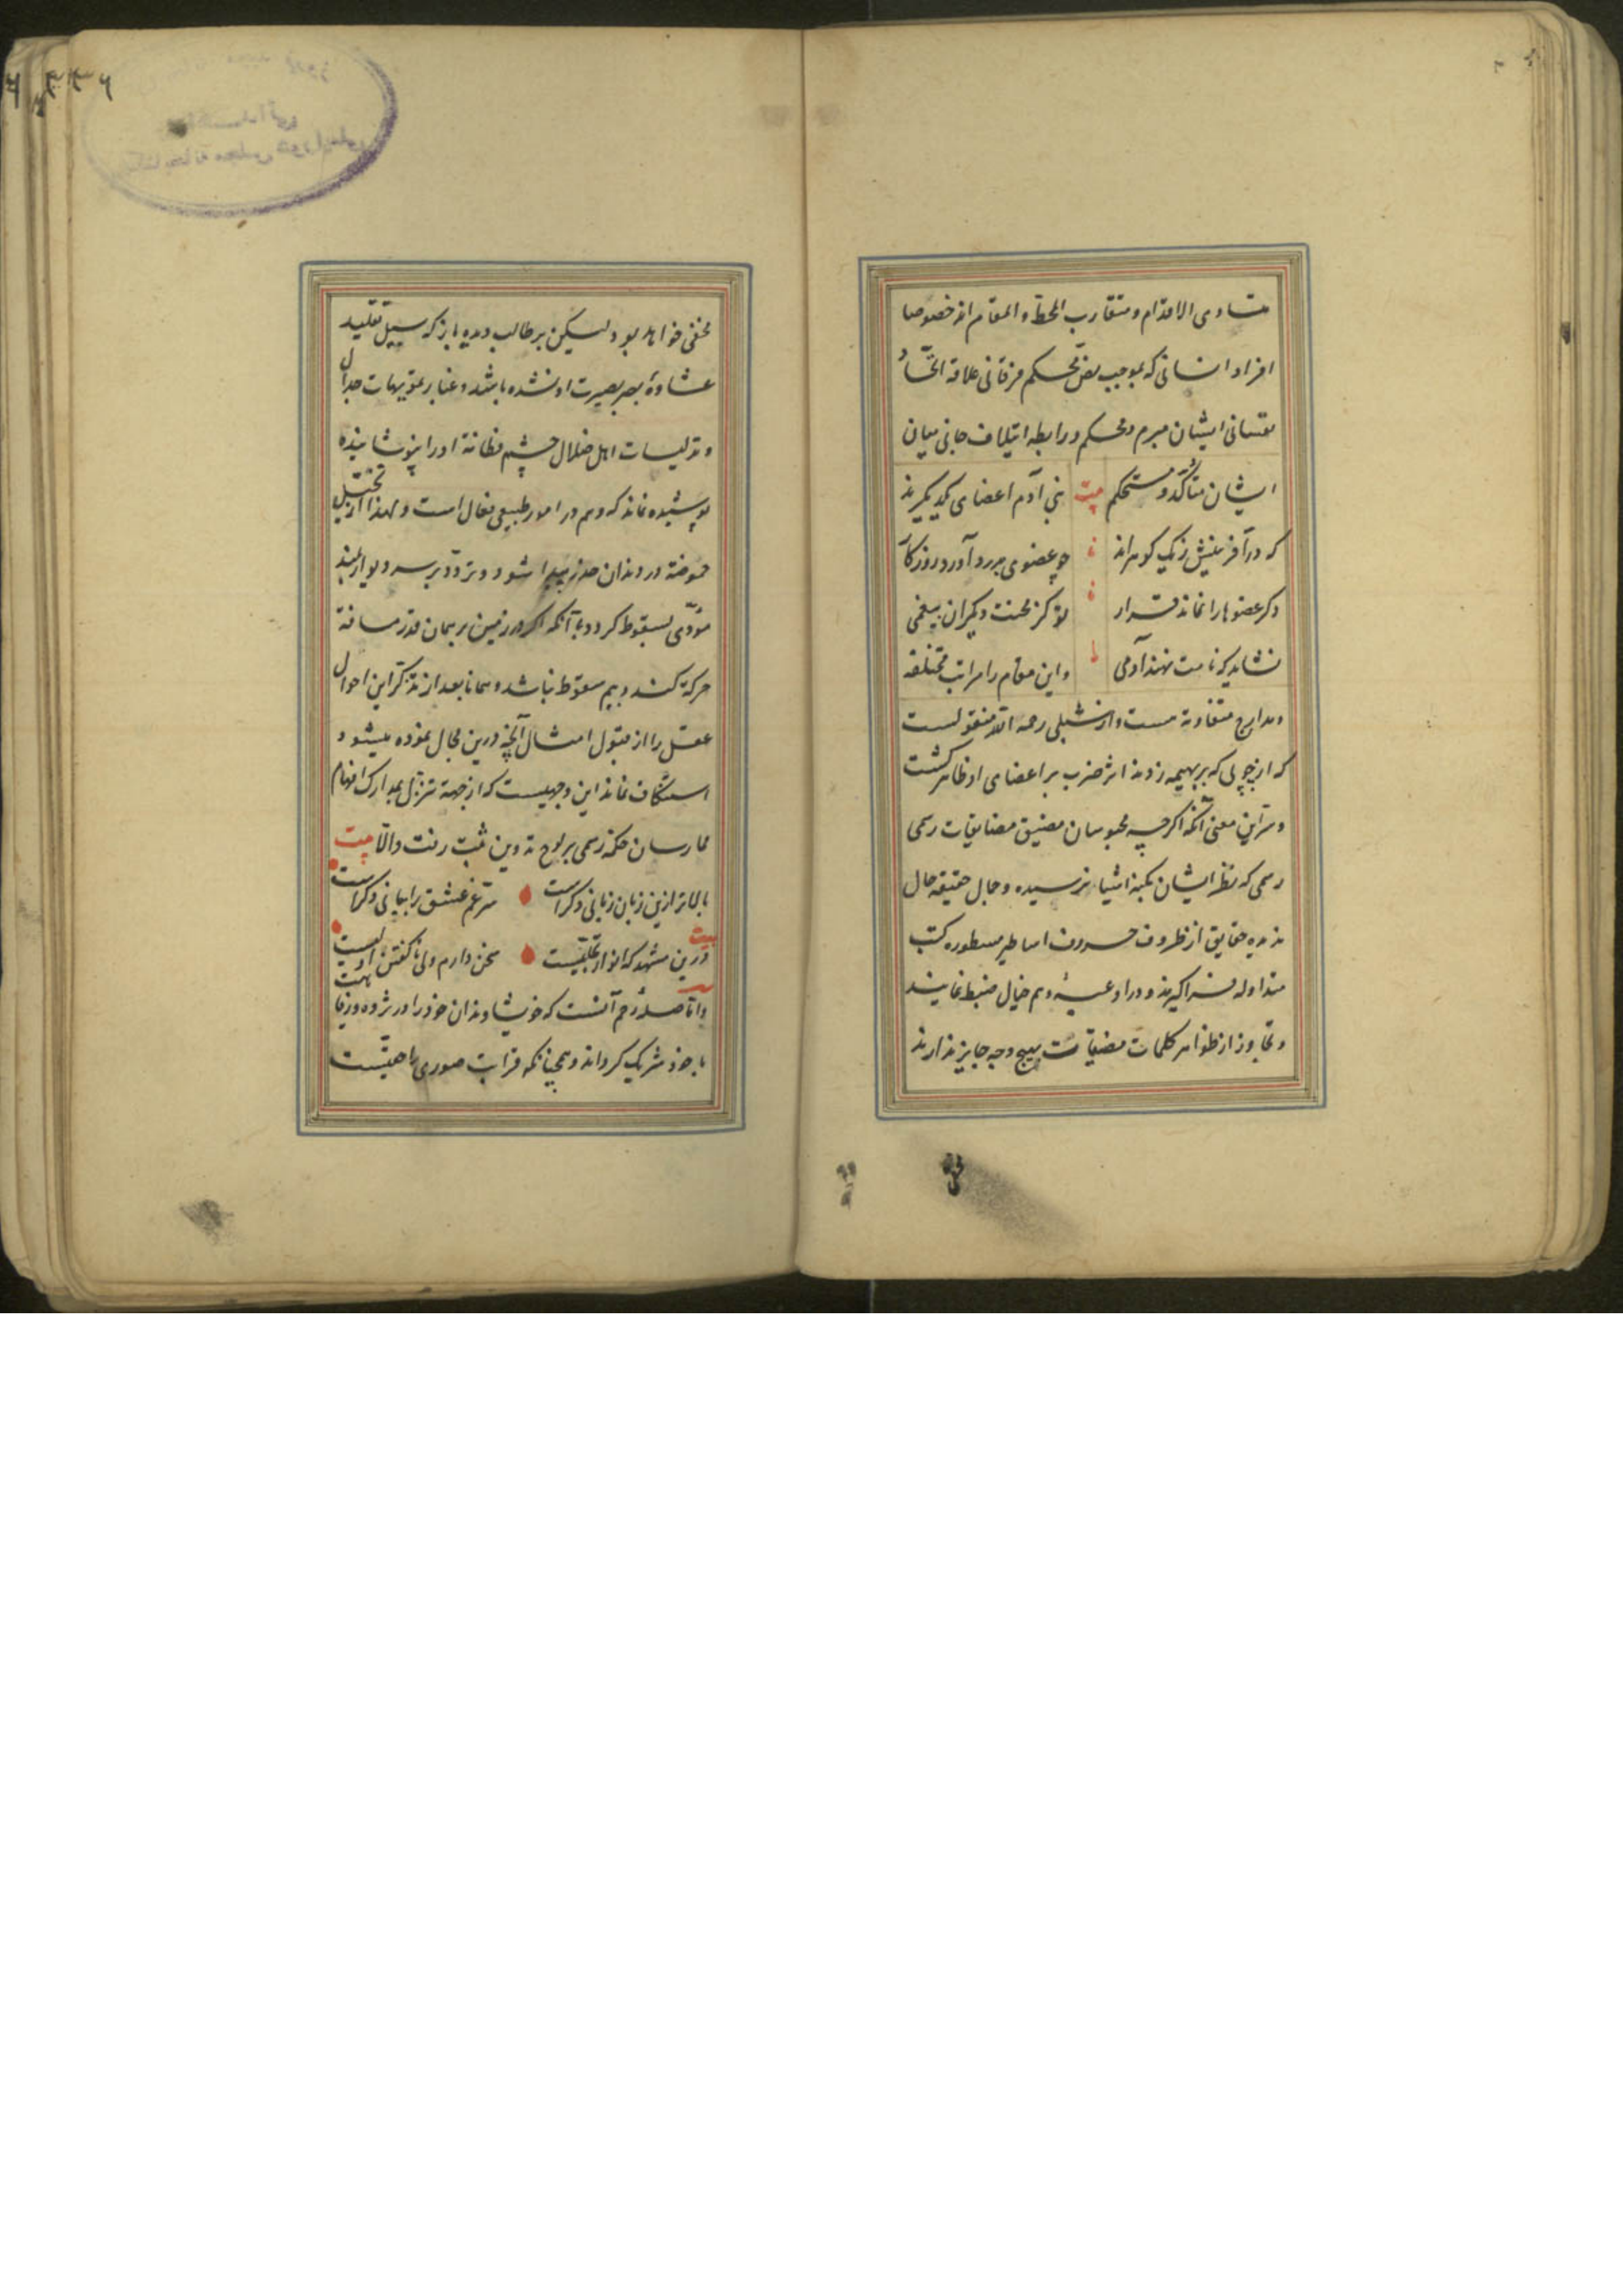 متساوی الاقدام و متقارب الخط و المقام اند خصوصا
افراد انسانی که بموجب نص محکم فرقانی علاقهٔ اتحاد
نفسانی ایشان مبرم و محکم و رابطه ایتلاف جانی میان
ایشان متأکد و مستحکم بیت بنی آدم اعضای یکدیگرند
که در آفرینش ز یک گوهراند چو عضوی بدرد آورد روزگار
دگر عضوها را نماند قرار تو کز محنت دیگران بیغمی
نشاید که نامت نهند آدمی و این مقام را مراتب مختلفه
و مدارج متفاوته هست و از شبلی رحمه الله منقولست
که از چوبی که بر بهیمه زدند اثر ضرب بر اعضای او ظاهر گشت
و سر این معنی آنکه اگرچه محبوسان مضیق مضایقات رسمی
رسمی که نظر ایشان بکنه اشیاء نرسیده و جمال حقیقة حال
ندیده حقایق از ظروف حروف اساطیر مسطوره کتب
متداوله فراگیرند و در اوعیهٔ وهم خیال ضبط نمایند
و تجاوز از ظواهر کلمات بهیچ وجه جایز ندارند
مخفی خواهد بود ولیکن بر طالب دیده باز که سبیل تقلید
غشاوهٔ بصر بصیرت او نشده باشد و غبار تمویهات جدال
و تدلیسات اهل ضلال چشم فطانة او را نپوشانیده
پوشیده نماند که وهم در امور طبیعی فعال است و لهذا از تخیل
حموضة در دندان خدر پیدا شود و تردد بر سر دیوار بلند
مؤدی بسقوط گردد با آنکه اگر در زمین بر همان قدر مسافة
حرکة کنند بیم سقوط نباشد و همانا بعد از تذکر این احوال
عقل را از قبول امثال آنچه درین مجال نموده میشود
استنکاف نماند این وجهیست که از جهة تنزل بمدارک افهام
ممارسان حکمة رسمی بر لوح تدوین ثبت رفت و الا بیت
بالاتر ازین زبان زبانی دگر است سر غم عشق را بیانی دگر است
بیت درین مشهد که انوار تجلیست سخن دارم ولی ناگفتن اولیست
و اما صلهٔ رحم آنست که خویشاوندان خود را در ثروه و رفاهیت
با خود شریک گرداند و همچنانکه قرابت صوری را حقیست